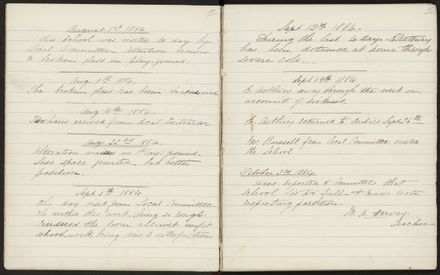 August 1st 1884
This school was visited to day by
Local Committee. Attention drawn
to broken glass in play-ground.
Aug. 1st 1884.
The broken glass has been removed
Aug 1884.
arrived from Local Contractor
Aug. 22nd 1884.
Alteration made in Play-ground
Less space granted but better
position.
Sept. 5th 1884
this day visit from Local Committee
the work this week being so rough
rendered the room almost unfit
school work being done to satisfaction
Sept 12th 1884.
During the last 4 days
has been detained at home through
severe cold.
Sept 19th 1884
E. Anthony away through the week on
account of sickness.
E. Anthony returned to duties Sept 25th
Mr Russell from Local Committee visited
the School
October 3rd 1884
was reported to Committee that
school is too full & made note
respecting partition.
Harvey.
Teacher